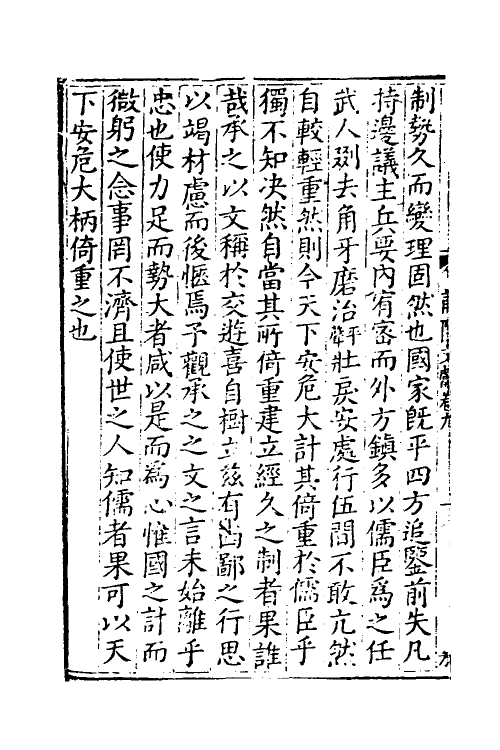 制勢久而變理固然也國家旣平四方追鑒前失凡
持邊議主兵要內宥密而外方鎮多以儒臣爲之任
武人剟去角牙磨治壯戾安處行伍間不敢亢然
自較輕重然則今天下安危大計其倚重於儒臣乎
獨不知決然自當其所倚重建立經久之制者果誰
哉承之以文稱於交遊喜自樹立茲有西鄙之行思
以竭材慮而後愜焉予觀承之之文之言未始離乎
忠也使力足而勢大者咸以是而爲心惟國之計而
微躬之念事罔不濟且使世之人知儒者果可以天
下安危大柄倚重之也